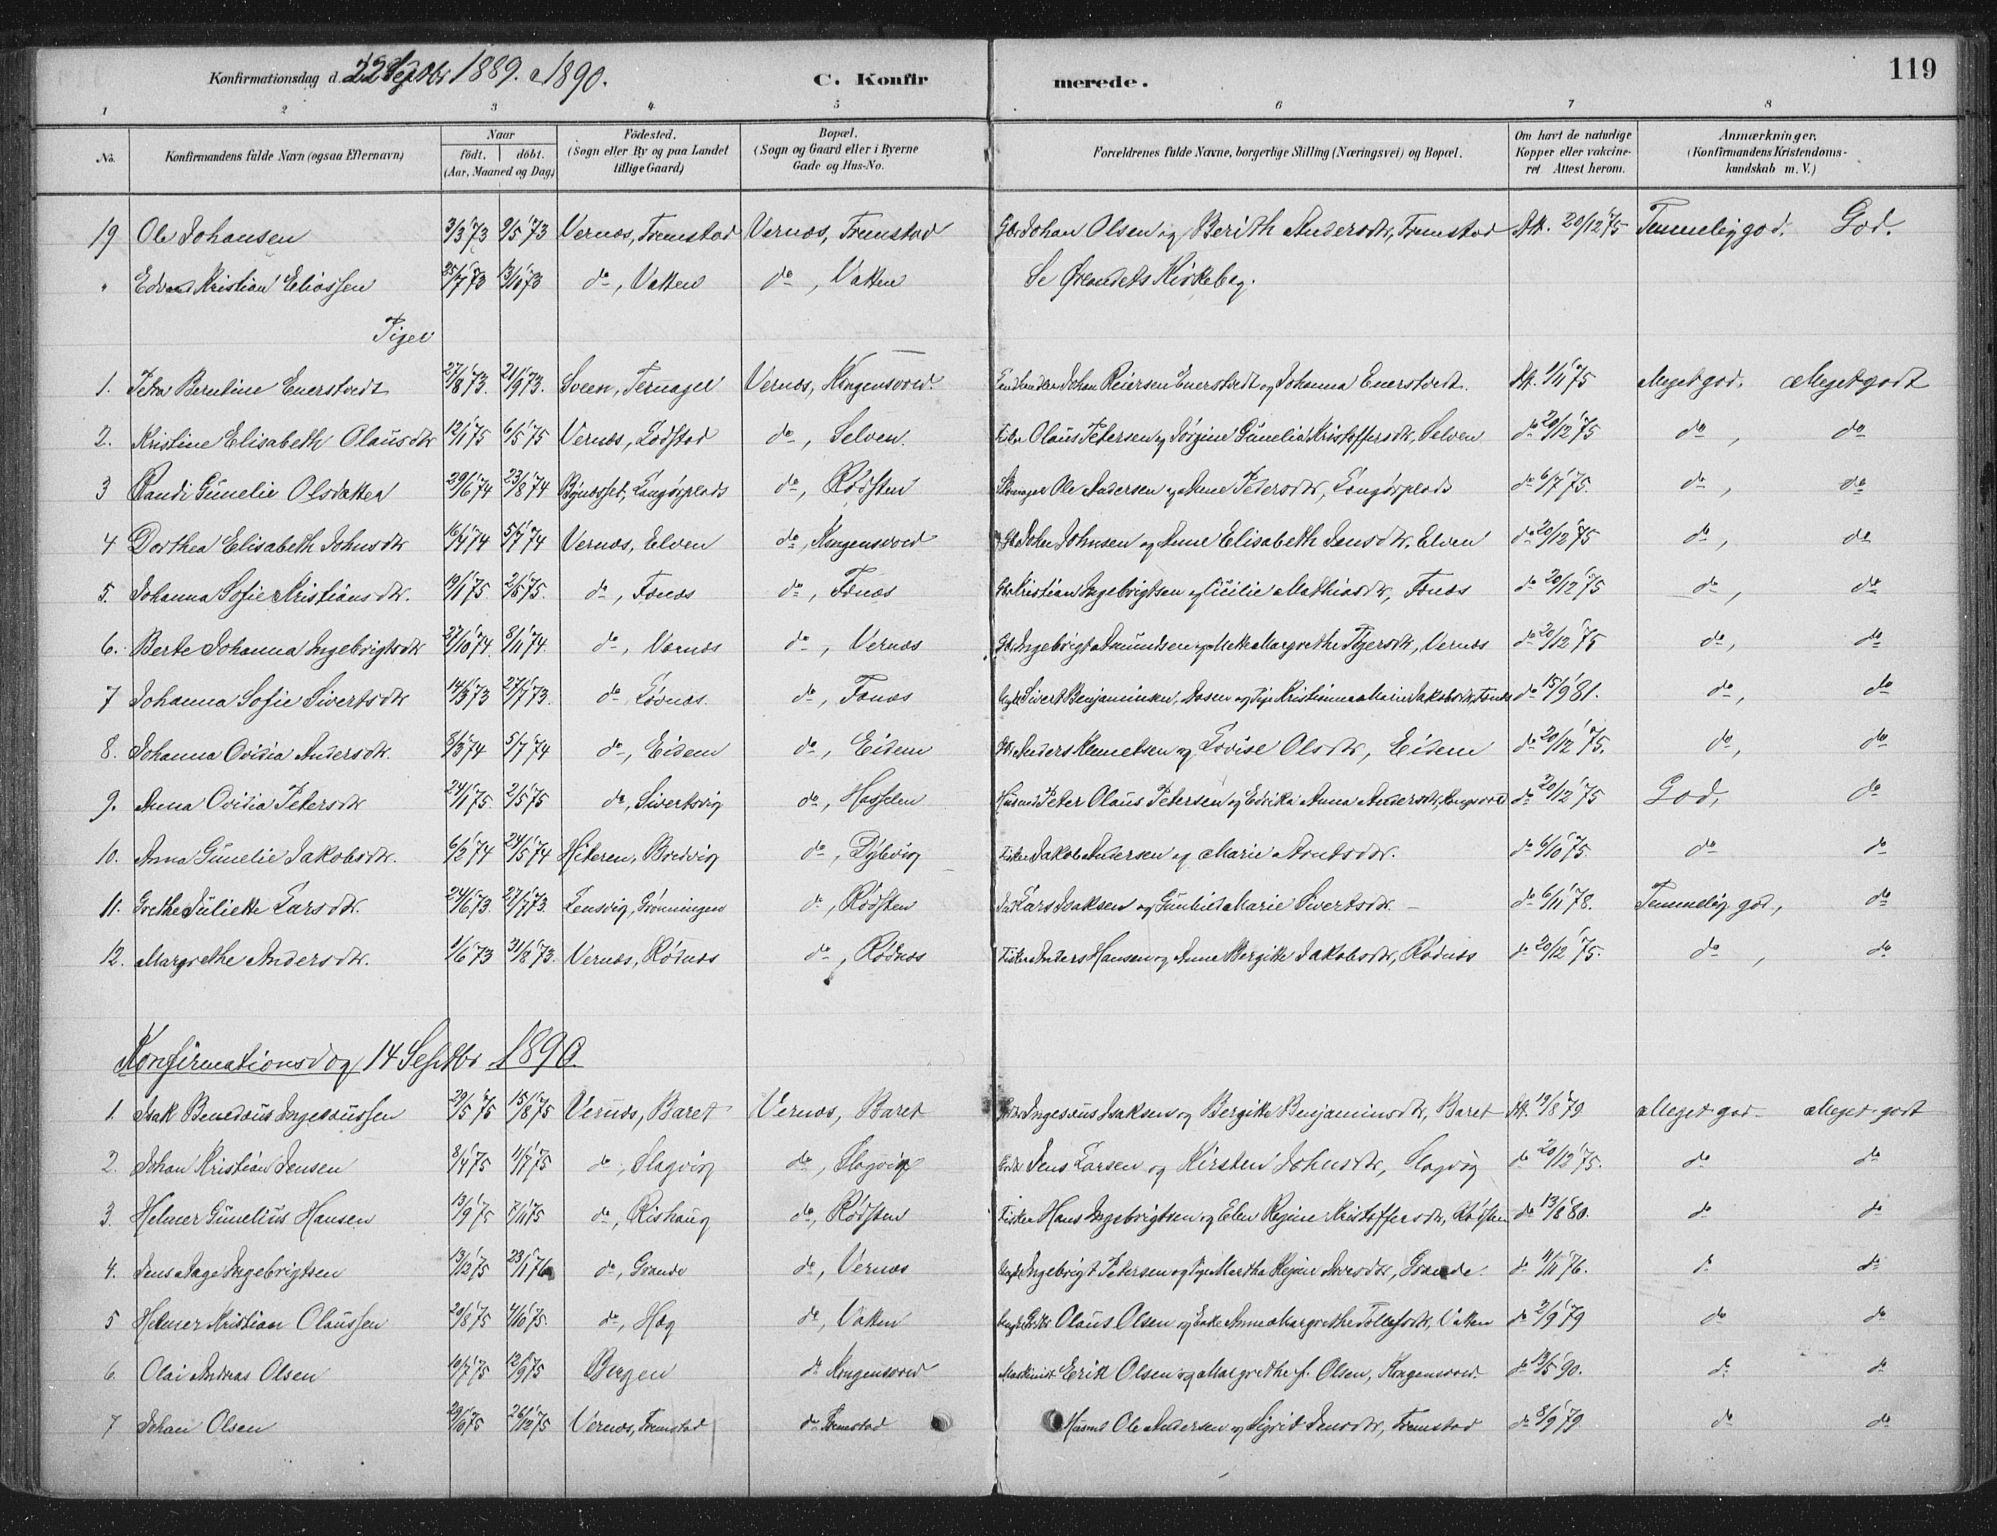 119
Konfirmationsdag d. 22 Septbr 1889. 1890. C. Konfirmerede.
1 2 3 4 5 6 7 8
No. Konfirmandens fulde Navn (ogsaa Efternavn) Naar født. døbt. (Aar, Maaned og Dag) Fødested. (Sogn eller By og paa Landet tillige Gaard) Bopæl. (Sogn og Gaard eller i Byerne Gade og Hus-No. Forældrenes fulde Navne, borgerlige Stilling (Næringsvei) og Bopæl. Om havt de naturlige Kopper eller vakcineret Attest herom. Anmærkninger. (Konfirmandens Kristendomskundskab m. V.)
19 Ole Johansen 3/3 73 9/5 73 Vernæs, Fremstad Vernæs, Fremstad Gbr Johan Olsen og Berith Andersdtr, Fremstad Att. 20/12 75 Temmelig god. God.
" Edvard Kristian Eliassen 25/7 73 13/10 73 do, Vatten do, Vatten Se Ørlandets Kirkebog.
Piger
1. Petra Berntine Enerstvedt 27/8 73. 21/9 73. Sveen, Ternager Vernæs, Kongensvold. Johan Reiersen Enerstvedt og Johanna Enerstvedt. Att. 1/11 75 Meget god. Meget godt
2. Kristine Elisabeth Olausdtr 12/1 75 6/5 75 Vernæs, Lodstad do, Selven. Fisker Olaus Petersen og Jørgine Gunelia Kristoffersdtr, Selven do 20/12 75 do, do
3 Randi Gunelie Olsdatter 29/6 74 23/8 74 Langørplads do, Rødsten Ole Andersen og Anne Petersdtr, Langørplads do 6/7 75. do, do
4 Dorthea Elisabeth Johnsdtr 16/4 74 5/7 74 Vernæs, Elven do, Kongensvold Gbr John Johnsen og Anne Elisabeth Jensdtr. Elven do 20/12 75 do, do
5. Johanna Sofie Kristiansdtr. 19/1 75 2/5 75. do, Fænæs do, Fænæs Gbr Kristian Ingebrigtsen og Cicilie Mathiasdtr, Fænæs do 20/12 75 do, do
6. Berte Johanna Ingebrigtsdtr 27/10 74. 8/11 74. do, Vernæs do, Vernæs Gbr Ingebrigt Amundsen og Mette Margrethe Pedersdtr, Vernæs do 20/12 75 do, do
7 Johanna Sofie Sivertsdtr 14/3 73 27/7 73. do Løvnæs. do, Fænæs Ungk Sivert Benjaminsen, Aasen og Pige Kristianna Marie Jakobsdtr, Fænæs do 15/9 81. do, do
8. Johanna Ovidia Andersdtr. 8/3 74 5/7 74 do, Eidem do, Eidem Gbr Anders Kunetsen og Lovise Olsdtr, Eidem do 20/12 75. do, do
9. Anna Ovidia Petersdtr 24/1 75. 2/5 75 do, Sivertsvig do, Hasselen Husmd Peter Olaus Petersen og Edvika Anna Andersdtr, Kongsvold do 20/12 75 God, do
10. Anna Gunelie Jakobsdtr. 6/2 74 24/5 74 Hiteren, Bredvig do, Dybvig Fisker Jakob Andersen og Marie Arntsdtr. do 6/10 75. do do
11. Grethe Juliette Larsdtr. 24/6 73. 27/7 73. Lensvig, Grønningen do, Rødsten Lars Isaksen og Gunhild Marie Sivertsdtr. do 6/11 78. Temmelig god, do
12. Margrethe Andersdtr. 1/6 73 31/8 73. Vernæs, Rødnæs do, Rødnæs Fisker Anders Hansen og Anne Bergitte Jakobsdtr, Rødnæs do 20/12 75. do, do
Konfirmationsdag 14 Septbr 1890.
1. Isak Benedøus Ingeøussen 29/5 75 15/8 75 Vernæs, Baret Vernæs, Baret Ingeøus Isaksen og Bergitte Benjaminsdtr, Baret Att. 19/8 79 Meget god Meget godt
2. Johan Kristian Jensen 8/4 75 11/7 75 do, Slagvig do, Slagvig Jens Larsen og Kirsten Johnsdtr, Slagvig do 20/12 75. do do
3. Helmer Gunelius Hansen 13/9 75 7/11 75 do, Rishaug do, Rødsten Fisker Hans Ingebrigtsen og Elen Regine Kristoffersdtr, Rødsten do 13/8 80. do do
4. Jens Aage Ingebrigtsen 13/12 75 23/1 76 do, Grande do, Vernæs Ungk Ingebrigt Petersen og Pige Martha Regine Arnesdtr, Grande. do 11/11 76. do do
5 Helmer Kristian Olaussen 29/8 75 4/10 75. do, Hag do, Vatten Olaus Olsen og Enke Anne Margrethe Tollefsdtr, Vatten do 2/9 79 do do
6. Olai Andreas Olsen 10/7 75 12/9 75 Bergen do Kongensvold Maskinist Erik Olsen og Margrethe f. Olsen, Kongensvold. do 13/5 90. do do
7 Johan Olsen 29/9 75 26/12 75 Vernæs, Fremstad do Fremstad Husmd Ole Andersen og Sigrid Jensdtr, Fremstad do 8/9 79 do do